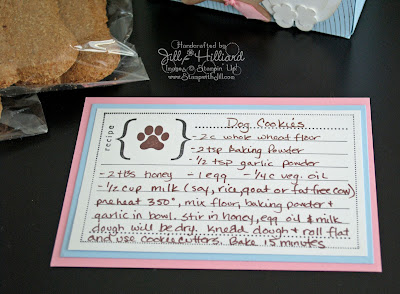 Handcrafted by
Jill Hilliard
Images © Stampin' Up!
www.StampwithJill.com
recipe
Dog Cookies
- 2 c whole wheat flour
- 2 tsp Baking Powder
- 1/2 tsp garlic powder
- 2 tbs honey - 1 egg - 1/4 c veg. oil
- 1/2 cup milk (soy, rice, goat or fat free cow)
preheat 350°, mix flour, baking powder &
garlic in bowl. stir in honey, egg, oil & milk
dough will be dry. Knead dough & roll flat
and use cookie cutters. Bake 15 minutes